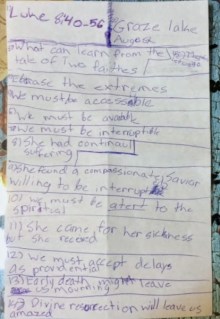 Luke 8:40-56 Graze lake
August
What can learn from the
tale of Two
Erase the extremes
We must be accessable
We must be available
We must be interruptible
She had continual
suffering
She found a compassionate Savior
willing to be interrupt
we must be alert to the
spiritual
11) She came for her sickness
but she record
12) we must accept delays
as providential
13) early death might leave
us mourning
Divine resorrection will leave us
amazed